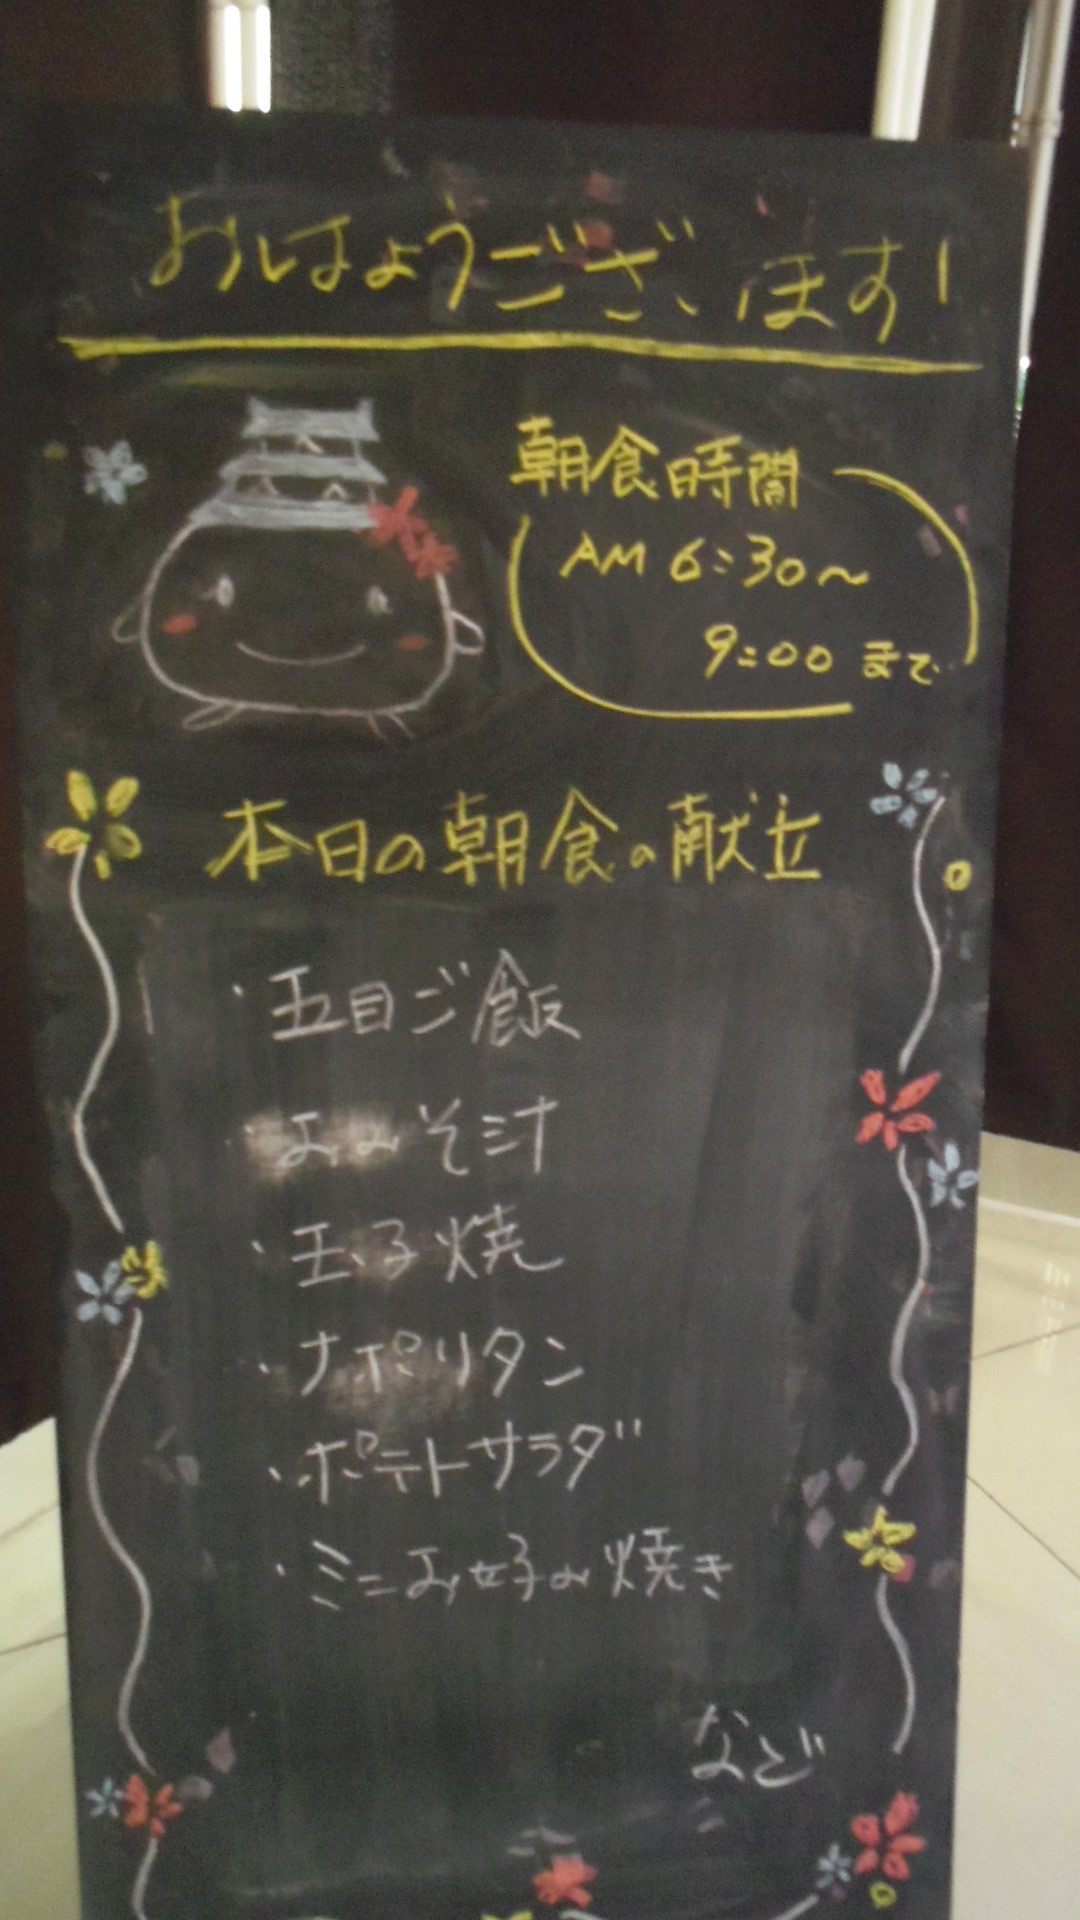 おはようございます!
朝食時間
AM 6:30〜
9:00 まで
本日の朝食の献立
・五目ご飯
おみそ汁
・玉子焼
・ナポリタン
・ポテトサラダ
・ミニお好み焼き
など